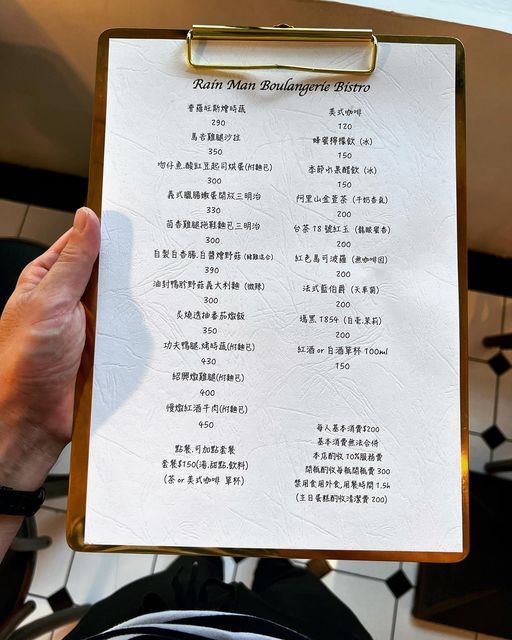 Rain Man Boulangerie Bistro
普羅旺斯燴時蔬
290
馬告雞腿沙拉
350
吻仔魚.酸紅豆起司烘蛋(附麵包)
300
義式臘腸嫩蛋開放三明治
330
茴香雞腿拖鞋麵包三明治
300
自製白香腸.白醬燴野菇(豬雞混合)
390
油封鴨胗野菇義大利麵(微辣)
300
炙燒透抽番茄燉飯
350
功夫鴨腿.烤時蔬(附麵包)
430
紹興燉雞腿(附麵包)
400
慢燉紅酒牛肉(附麵包)
450
點餐.可加點套餐
套餐$150(湯.甜點.飲料)
(茶 or 美式咖啡 單杯)
美式咖啡
120
蜂蜜檸檬飲 (冰)
150
季節水果醋飲 (冰)
150
阿里山金萱茶 (牛奶香氣)
200
台茶 18 號紅玉 (蜜香)
200
紅色馬可波羅 (無咖啡因)
200
法式藍伯爵 (矢車菊)
200
瑪黑 1854 (白毫.茉莉)
200
紅酒 or 白酒單杯 100ml
150
每人基本消費$200
基本消費無法合併
本店酌收 10%服務費
開瓶酌收每瓶開瓶費 300
禁用食用外食,用餐時間 1.5h
(生日蛋糕酌收清潔費 200)